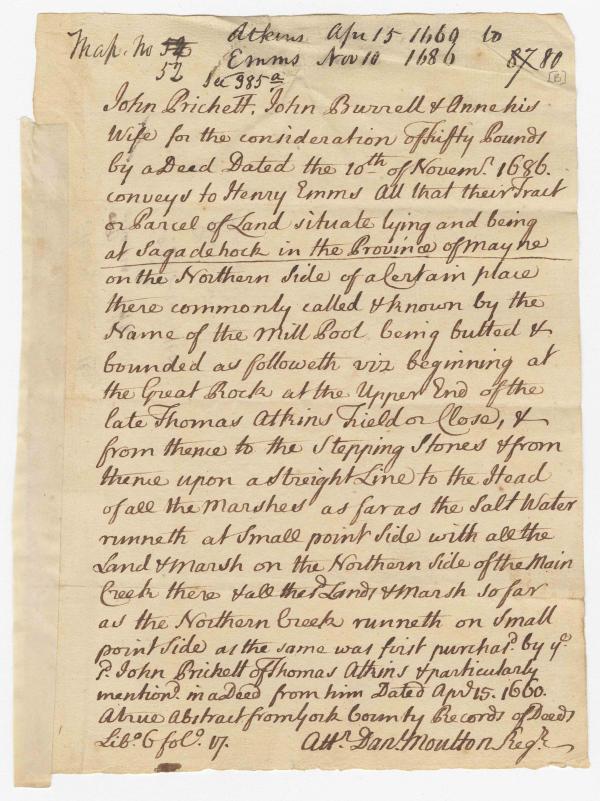 Atkins Apr 15 1660 to
Map. No 54 Emms Nov 10 1686 87 80
52 See 385a [B]
John Prickett, John Burrell & Anne his
Wife for the consideration of fifty Pounds
by a Deed Dated the 10th of Novemr. 1686.
conveys to Henry Emms All that their Tract
or Parcel of Land situate lying and being
at Sagadehock in the Province of Mayne
on the Northern Side of a Certain place
there commonly called & known by the
Name of the Mill Pool being butted &
bounded as followeth viz beginning at
the Great Rock at the Upper End of the
late Thomas Atkins Field or Close, &
from thence to the Stepping Stones & from
thence upon a Streight Line to the Head
of all the Marshes as far as the Salt Water
runneth at Small point Side with all the
Land & Marsh on the Northern Side of the Main
Creek there & all the sd. Lands & Marsh so far
as the Northern Creek runneth on Small
point Side as the same was first purchasd. by ye.
sd. John Prickett of Thomas Atkins & particularly
mentiond. in a Deed from him Dated Apl. 15. 1660.
A true Abstract from York County Records of Deeds
Libo. 6 folo. 17. Attr. Danl. Moulton Regr.